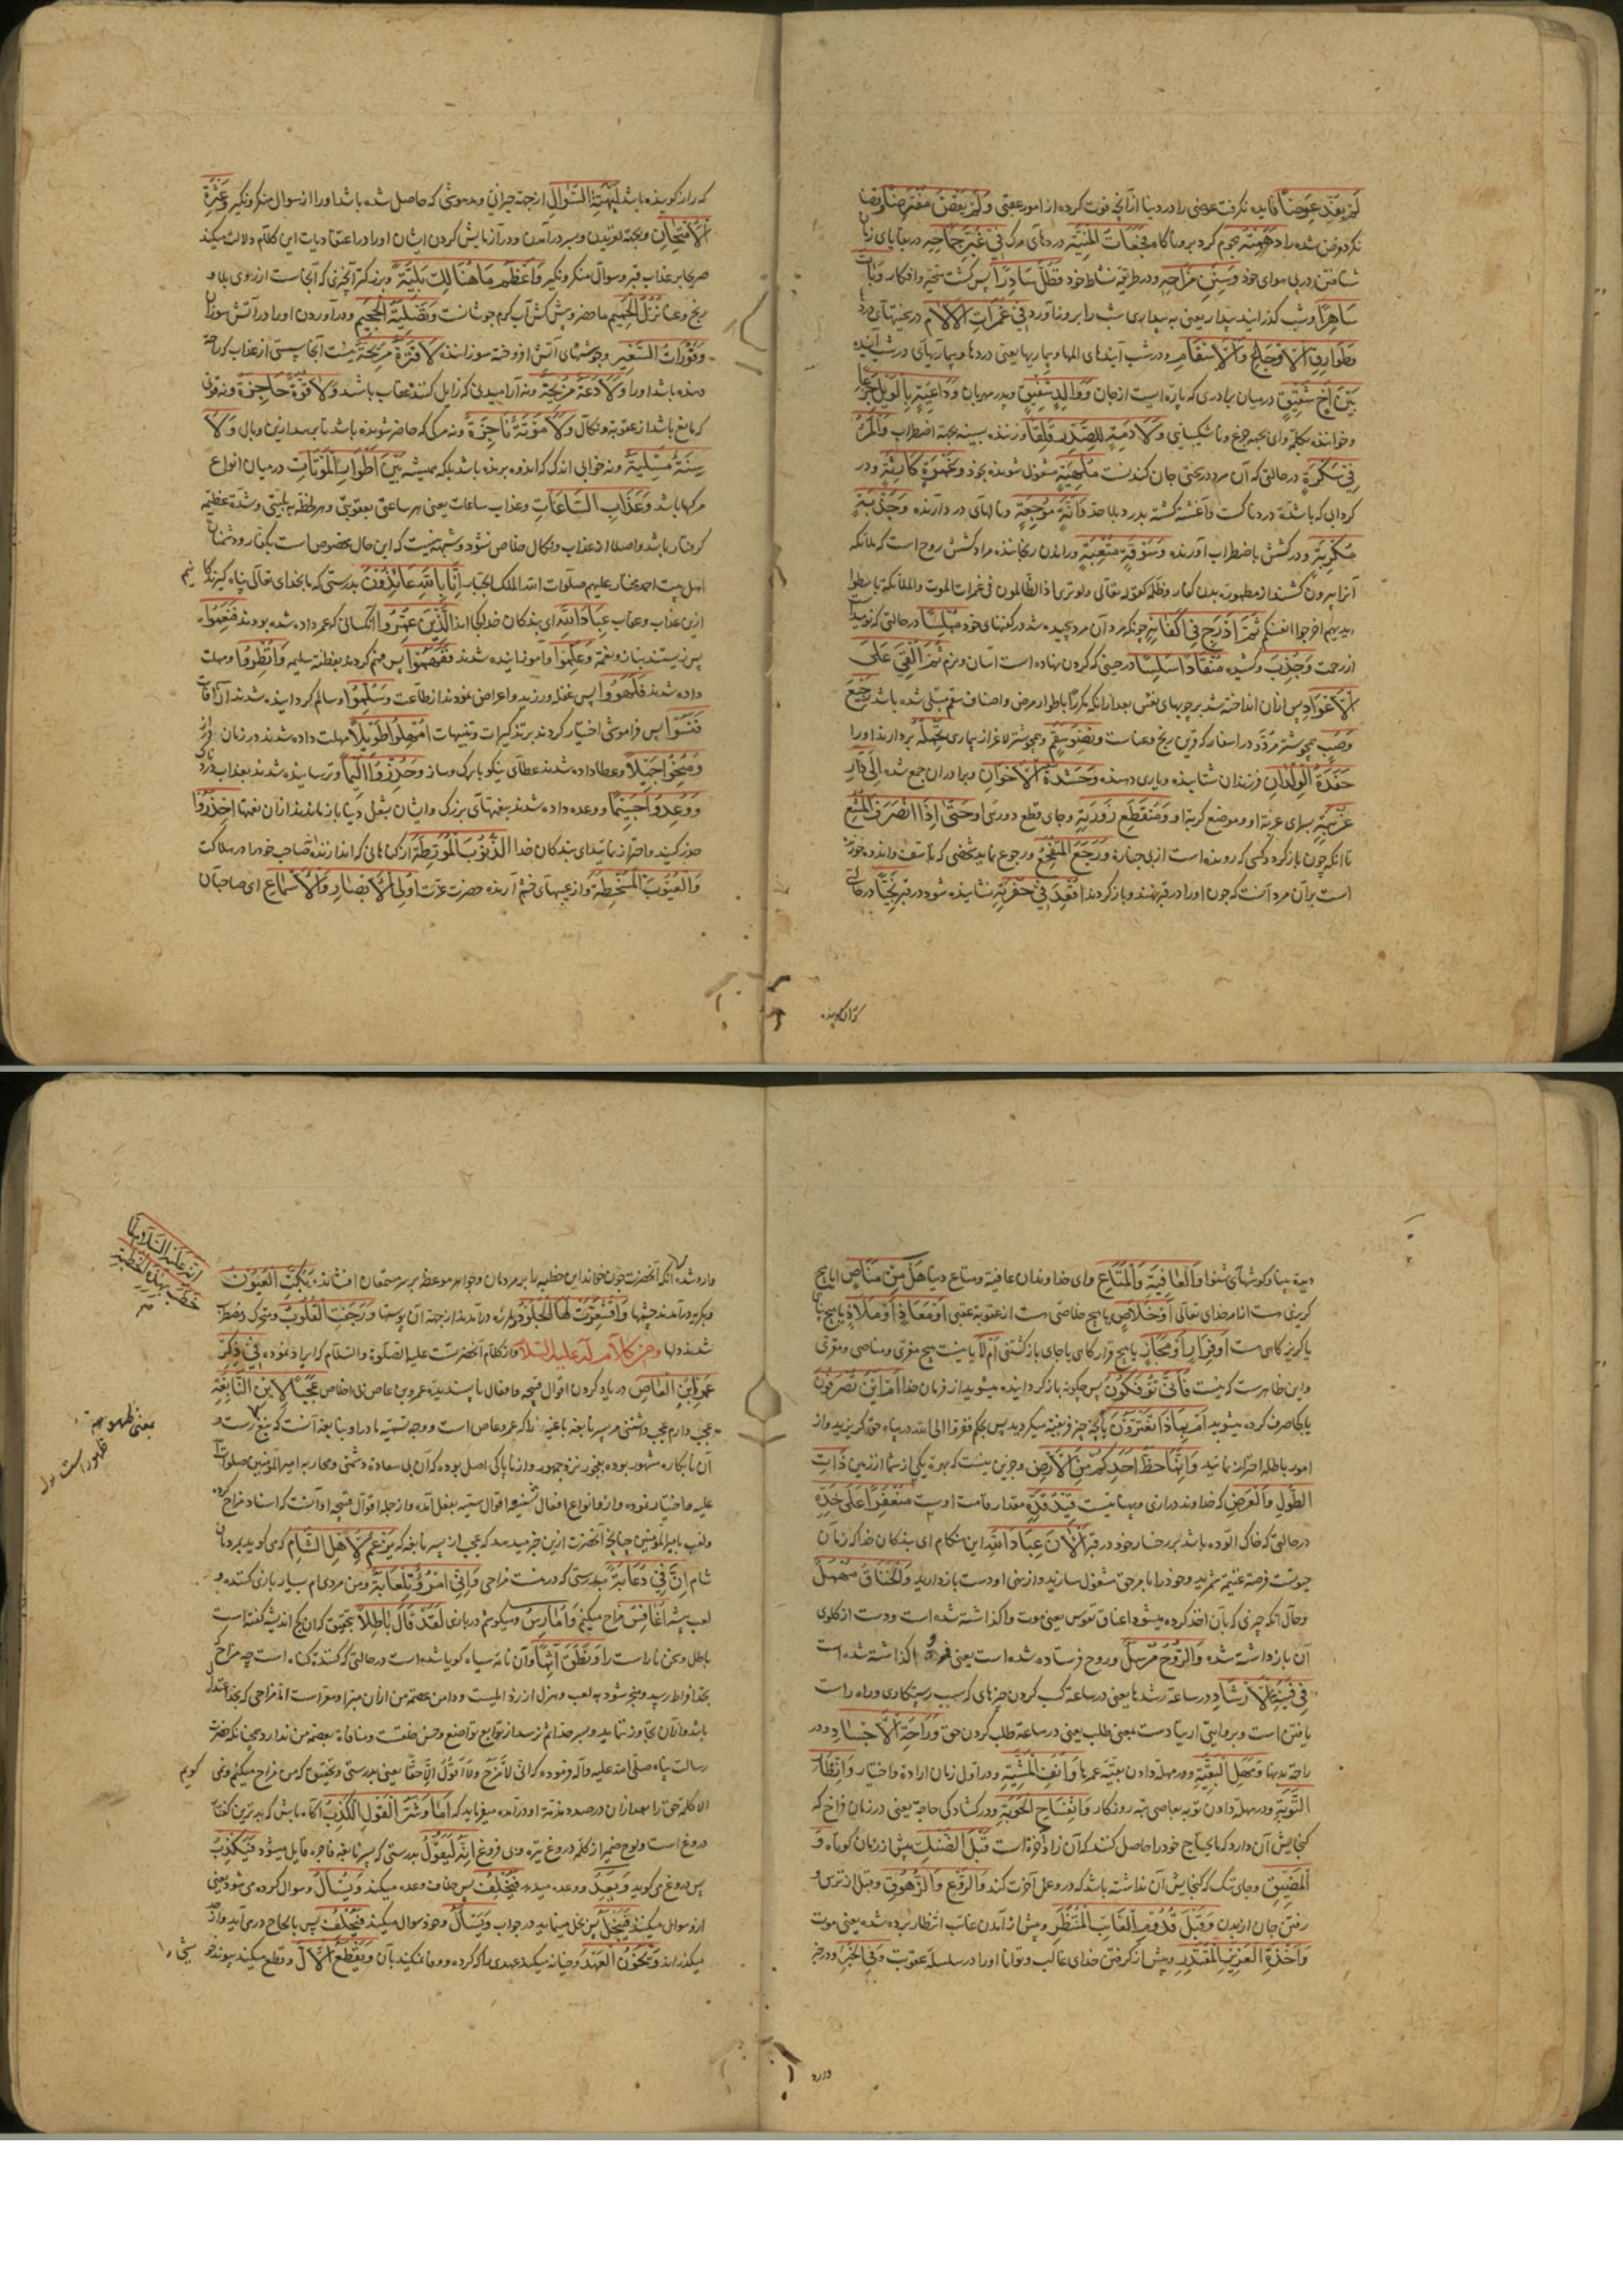 لَمْ یُفِدْ عِوَضًا فایده نکرفت عوضی را در دنیا از آنچه فوت کرده از امور عقبی وَلَمْ یَقْضِ مُفْتَرَضًا و قضا
نکرد فرض شده را دَهِمَتْهُ هجوم کرد برو ناکاه فَجَعَاتُ الْمَنِیَّةِ دردهای مرک فِی غُبَّرِ جِمَاحِهِ در بقایای زمان
شتافتن در پی هوای خود وَسَنَنِ مِرَاحِهِ و در طریقه نشاط خود فَظَلَّ سَادِرًا پس کشت متحیر و افکار وَبَاتَ
سَاهِرًا و شب کذرانید بیدار یعنی به بیداری شب را بروز آورد فِی غَمَرَاتِ الْآلَامِ در سختیهای درد
وَطَوَارِقِ الْأَوْجَاعِ وَالْأَسْقَامِ و در شب آیندهای المها و بیماریها یعنی دردها و بیماریهای در شب آینده
بَیْنَ أَخٍ شَقِیقٍ در میان برادری که پاره ایست از جان وَوَالِدٍ شَفِیقٍ و پدر مهربان وَدَاعِیَةٍ بِالْوَیْلِ جَزَعًا
و خواننده بکلمه وای بجهة جزع و ناشکیبایی وَلَادِمَةٍ لِلصَّدْرِ قَلَقًا و زننده بسینه بجهة اضطراب وَالْمَرْءُ
فِی سَکْرَةٍ در حالتی که آن مرد در سختی جان کندنست مُلْهِیَةٍ مشغول شونده بخود وَغَمْرَةٍ کَارِثَةٍ و در
کردابی که باشدّة دردناکست و آغشته کشته بدرد و بلا وَأَنَّةٍ مُوجِعَةٍ و نالهای در دآرنده وَجَذْبَةٍ
مُکْرِبَةٍ و در کشش باضطراب آورنده وَسَوْقَةٍ مُتْعِبَةٍ و راندن رنجاننده مراد کشش روح است که ملائکه
آنرا بیرون کشند از مطموره بدن کفار و ظَلَمه کقوله تعالی ولو تری اذ الظالمون فی غمرات الموت والملائکة باسطوا
ایدیهم اخرجوا انفسکم ثُمَّ أُدْرِجَ فِی أَکْفَانِهِ چونکه مرد آن مرد پیچیده شد در کفنهای خود مُبْلِسًا در حالتی که نومید است
از رحمت وَجُذِبَ و کشیده شد مُنْقَادًا سَلِسًا در حینی که کردن نهاده است آسان و نرم ثُمَّ أُلْقِیَ عَلَی
الْأَعْوَادِ پس از آن انداخته شد بر چوبهای نعش بعد از آنکه مکررًا باطوار مرض و اصناف سقم مبتلی شده باشد رَجِیعَ
وَصَبٍ همچو شتر مردّد در اسفار که قرین رنج و عناست وَنِضْوَ سَقَمٍ و همچو شتر لاغر از بیماری تَحْمِلُهُ بردارند او را
حَفَدَةُ الْوِلْدَانِ فرزندان شتابنده و یاری دهنده وَحَشَدَةُ الْإِخْوَانِ و برادران جمع شده إِلَی دَارِ
غُرْبَتِهِ بسرای غربة او و موضع کربة او وَمُنْقَطَعِ زَوْرَتِهِ و جای قطع دورتی او حَتَّی إِذَا انْصَرَفَ الْمُشَیِّعُ
تا آنکه چون باز کردد کسی که رونده است از پی جنازه وَرَجَعَ الْمُتَفَجِّعُ و رجوع نماید شخصی که تأسف و اندوه خورنده
است بر آن مرد آنست که چون او را در قبر نهند و باز کردند أُقْعِدَ فِی حُفْرَتِهِ نشانیده شود در قبر نَجِیًّا در حالتی
که راز کوینده باشد لِبَهْتَةِ السُّؤَالِ از جهة حیرانی و مدهوشی که حاصل شده باشد او را از سوال منکر و نکیر وَعَثْرَةِ
الْاِمْتِحَانِ و بجهة لغزیدن و بسر درآمدن و در آزمایش کردن ایشان او را در اعتقادیات این کلام دلالت میکند
صریحا بر عذاب قبر و سوآل منکر و نکیر وَأَعْظَمُ مَا هُنَالِكَ بَلِیَّةً و بزرکتر آنچیزی که آنجاست از روی بلا و
رنج و عنا نُزُلُ الْحَمِیمِ ما حضر و پیش کش آب کرم جوشانست وَتَصْلِیَةُ الْجَحِیمِ و درآوردن او را در آتش سوزان
وَفَوْرَاتُ السَّعِیرِ و جوششهای آتش افروخته سوزاننده لَا فَتْرَةٌ مُرِیحَةٌ نیست آنجا سستی از عذاب که راحة
دهنده باشد او را وَلَا دَعَةٌ مُزِیحَةٌ و نه آرامیدنی که زایل کننده عقاب باشد وَلَا قُوَّةٌ حَاجِزَةٌ و نه قوتی
که مانع باشد از عقوبة و نکال وَلَا مَوْتَةٌ نَاجِزَةٌ و نه مرکی که حاضر شونده باشد تا برهد ازین وبال وَلَا
سِنَةٌ مُسْلِیَةٌ و نه خوابی اندک که اندوه برنده باشد بلکه همیشه بَیْنَ أَطْوَارِ الْمَوْتَاتِ در میان انواع
مرکها باشد وَعَذَابِ السَّاعَاتِ و عذاب ساعات یعنی هر ساعتی بعقوبتی و هر لحظه به بلیتی و شدّة عظیمه
کرفتار باشد و اصلا از عذاب و نکال خلاص نشود و شبهه نیست که این حال مخصوص است بکفار و دشمنان
اهل بیت احمد مختار علیهم صلوات الله الملک الجبار إِنَّا بِاللهِ عَائِذُونَ بدرستی که ما بخدای تعالی پناه کیرندکانیم
ازین عذاب و عقاب عِبَادَ اللهِ ای بندکان خدا کجااند الَّذِینَ عُمِّرُوا آنکسانی که عمر داده شده بودند فَنَعِمُوا
پس زیستند بناز و نعمة وَعُلِّمُوا و آموزانیده شدند فَفَهِمُوا پس فهم کردند بفطنة سلیمه وَأُنْظِرُوا و مهلت
داده شدند فَلَهَوْا پس غفله ورزیدند و اعراض نمودند از طاعت وَسُلِّمُوا و سالم کردانیده شدند از آفات
فَنَسُوا پس فراموشی اختیار کردند بر تذکیرات و تنبیهات أُمْهِلُوا طَوِیلًا مهلت داده شدند در زمان دراز
وَمُنِحُوا جَمِیلًا و عطا داده شدند عطای نیکو با برک و ساز وَحُذِّرُوا أَلِیمًا و ترسانیده شدند بعذاب دردناک
وَوُعِدُوا جَسِیمًا و وعده داده شدند بنعمتهای بزرک و ایشان بشغل دنیا باز ماندند از آن نعمتها احْذَرُوا
حذر کنید و احتراز نمائید ای بندکان خدا الذُّنُوبَ الْمُوَرِّطَةَ از کناهانی که اندازنده صاحب خود را در هلاکت
وَالْعُیُوبَ الْمُسْخِطَةَ و از عیبهای خشم آرنده حضرت عزت أُولِی الْأَبْصَارِ وَالْأَسْمَاعِ ای صاحبان
دیده بینا و کوشهای شنوا وَالْعَافِیَةِ وَالْمَتَاعِ و ای خداوندان عافیة و متاع دنیا هَلْ مِنْ مَنَاصٍ آیا هیچ
کریزی هست از امر خدای تعالی أَوْ خَلَاصٍ یا هیچ خلاصی هست از عقوبة عقبی أَوْ مَعَاذٍ أَوْ مَلَاذٍ یا هیچ پناه
یا کریزکاهی هست أَوْ فِرَارٍ أَوْ مَحَارٍ یا هیچ قرارکاهی یا جای بازکشتنی أَمْ لَا یا نیست هیچ مفری و مناصی و مقری
و این ظاهرست که نیست فَأَنَّی تُؤْفَکُونَ پس چکونه باز کردانیده میشوید از فرمان خدا أَمْ أَیْنَ تُصْرَفُونَ
یا بکجا صرف کرده میشوید أَمْ بِمَاذَا تَغْتَرُّونَ یا بچه چیز فریفته میکردید پس بحکم ففروا الی الله در پناه حق کریزید و از
امور باطله احتراز نمائید وَإِنَّمَا حَظُّ أَحَدِکُمْ مِنَ الْأَرْضِ و جز این نیست که بهره یکی از شما از زمین ذَاتِ
الطُّولِ وَالْعَرْضِ که خداوند درازی و پهنائیست قِیدُ قَدِّهِ مقدار قامت اوست مُتَعَفِّرًا عَلَی خَدِّهِ
در حالتی که خاک آلوده باشد بر رخسار خود در قبر الْآنَ عِبَادَ اللهِ این هنکام ای بندکان خدا که زمان
حیوتست فرصة غنیمة شمرید و خود را بامر حق مشغول سازید و از منهی او دست باز دارید وَالْخِنَاقُ مُهْمَلٌ
و حال آنکه چیزی که بآن اخذ کرده میشود اعناق نفوس یعنی موت واکذاشته شده است و دست از کلوی
آن باز داشته شده وَالرُّوحُ مُرْسَلٌ و روح فرستاده شده است یعنی فرو کذاشته شده است
فِی فَیْنَةِ الْإِرْشَادِ در ساعة رشدها یعنی در ساعة کسب کردن چیزهای که سبب رستکاری و راه راست
یافتن است و بروایتی ارتیادست بمعنی طلب یعنی در ساعة طلب کردن حق وَرَاحَةِ الْأَجْسَادِ و در
راحة بدنها وَمَهَلِ الْبَقِیَّةِ و در مهلة دادن بقیّه عمر ما وَأُنُفِ الْمَشِیَّةِ و در اول زمان ارادة و اختیار وَإِنْظَارِ
التَّوْبَةِ و در مهلة دادن توبه بعاصی تبه روزکار وَانْفِسَاحِ الْحَوْبَةِ و در کشادکی حاجة یعنی در زمان فراخ که
کنجایش آن دارد که مایحتاج خود را حاصل کنند که آن زاد آخرة است قَبْلَ الضَّنْكِ پیش از زمان کوتاه وَ
الْمَضِیقِ و جای تنک که کنجایش آن نداشته باشد که در و عمل آخرت کند وَالرَّوْعِ وَالزُّهُوقِ و قبل از ترس و
رفتن جان از بدن وَقَبْلَ قُدُومِ الْغَائِبِ الْمُنْتَظَرِ و پیش از آمدن غائب انتظار برده شده یعنی موت
وَأَخْذَةِ الْعَزِیزِ الْمُقْتَدِرِ و پیش از کرفتن خدای غالب و توانا او را در سلسله عقوبت وَفِی الْخَبَرِ و در خبر
وارد شده أنکه آنحضرت چون خواند این خطبه را بر مردمان و جواهر موعظه بر سر مستمعان افشاند بَکَتِ الْعُیُونُ
و بکریه درآمدند چشمها وَاقْشَعَرَّتْ لَهَا الْجُلُودُ و بلرزه درآمدند از جهة آن پوستها وَرَجَفَتِ الْقُلُوبُ و متحرک و مضطرب
شدند دلها وَمِنْ کَلَامٍ لَهُ عَلَیْهِ السَّلَامُ و از کلام آنحضرتست علیه الصّلوة والسّلام که ایراد نموده فِی ذِکْرِ
عَمْرِو بْنِ الْعَاصِ در یاد کردن اقوال قبیحه و افعال ناپسندیده عمرو بن عاص بی اخلاص عَجَبًا لِابْنِ النَّابِغَةِ
عجب دارم عجب داشتنی مر پسر نابغه باغیه را که عمرو عاص است و وجه تسمیه مادر او بنابغه آنست که
آن نابکاره مشهور بوده بفجور نزد جمهور و از ناپاکی اصل بوده که آن بی سعادة دشمنی و محاربه امیرالمؤمنین صلوات الله
علیه را اختیار نموده و ازو انواع افعال شنیعه و اقوال سیّئه بفعل آمده و از جمله اقوال قبیحه او آنست که اسناد مزاح کرده
و لعب بامیرالمؤمنین چنانچه آنحضرت ازین خبر میدهد که عجب از پسر نابغه که یَزْعُمُ لِأَهْلِ الشَّامِ که می کوید بمردمان
شام إِنَّ فِیَّ دُعَابَةً بدرستی که در منست مزاحی وَإِنِّی امْرُؤٌ تِلْعَابَةٌ و من مردی ام بسیار بازی کننده و
لعب پیشه أُعَافِسُ مزاح میکنم وَأُمَارِسُ و میکوشم در بازی لَقَدْ قَالَ بَاطِلًا بتحقیق که آن کج اندیشه کفته است
باطل و سخن ناراست را وَنَطَقَ آثِمًا و آن نامه سیاه کویا شده است در حالتی که کننده کناه است چه مزاح
بحد افراط رسیده و منجر شود به لعب و هزل از نزد ابلیست و دامن عصمة من از آن مبرا و معراست اما مزاحی که بحد اعتدال
باشد و از آن تجاوز ننماید و بسر حد افراط نرسد از توابع تواضع و حسن خلقست و منافاة بعصمة من ندارد همچنانکه حضرت
رسالت پناه صلّی الله علیه وآله فرموده که انّی لَأمزح ولا اقول الّا حقّا یعنی بدرستی و تحقیق که من مزاح میکنم و نمی کویم
الا کلمه حق را بعد از آن در صدد مذمّة او درآمده میفرماید که أَمَا وَشَرُّ الْقَوْلِ الْکَذِبُ آکاه باش که بدترین کفتار
دروغ است و لوح ضمیر از کلمه دروغ تیره و بی فروغ إِنَّهُ لَیَقُولُ بدرستی که پسر نابغه فاجره قایل میشود فَیَکْذِبُ
پس دروغ می کوید وَیَعِدُ و وعده میدهد فَیُخْلِفُ پس خلاف وعده میکند وَیُسْأَلُ و سوال کرده می شود یعنی
ازو سوال میکنند فَیَبْخَلُ پس بخل مینماید در جواب وَیَسْأَلُ و خود سوال میکند فَیُلْحِفُ پس بالحاح در می آید و از حد
میکذراند وَیَخُونُ الْعَهْدَ و خیانة میکند عهدی را که کرده و وفا نمیکند بآن وَیَقْطَعُ الْإِلَّ و قطع میکند پیوند خویش را
انه علیه السّلام لما
خطب بهذه الخطبة